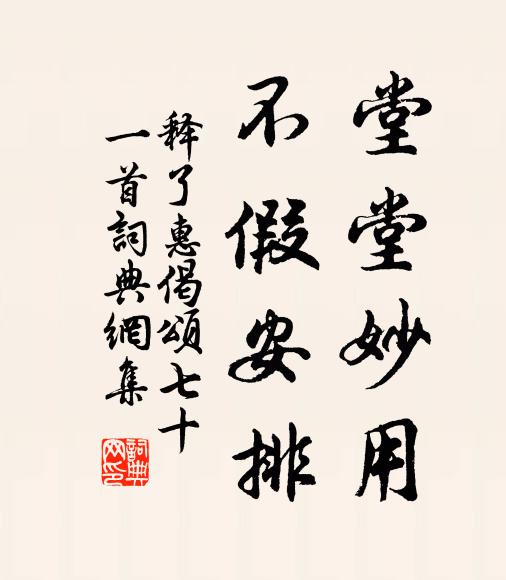 堂堂妙用
不假安排
释了惠偈頌七十
一首詞典網集
詞典
网印